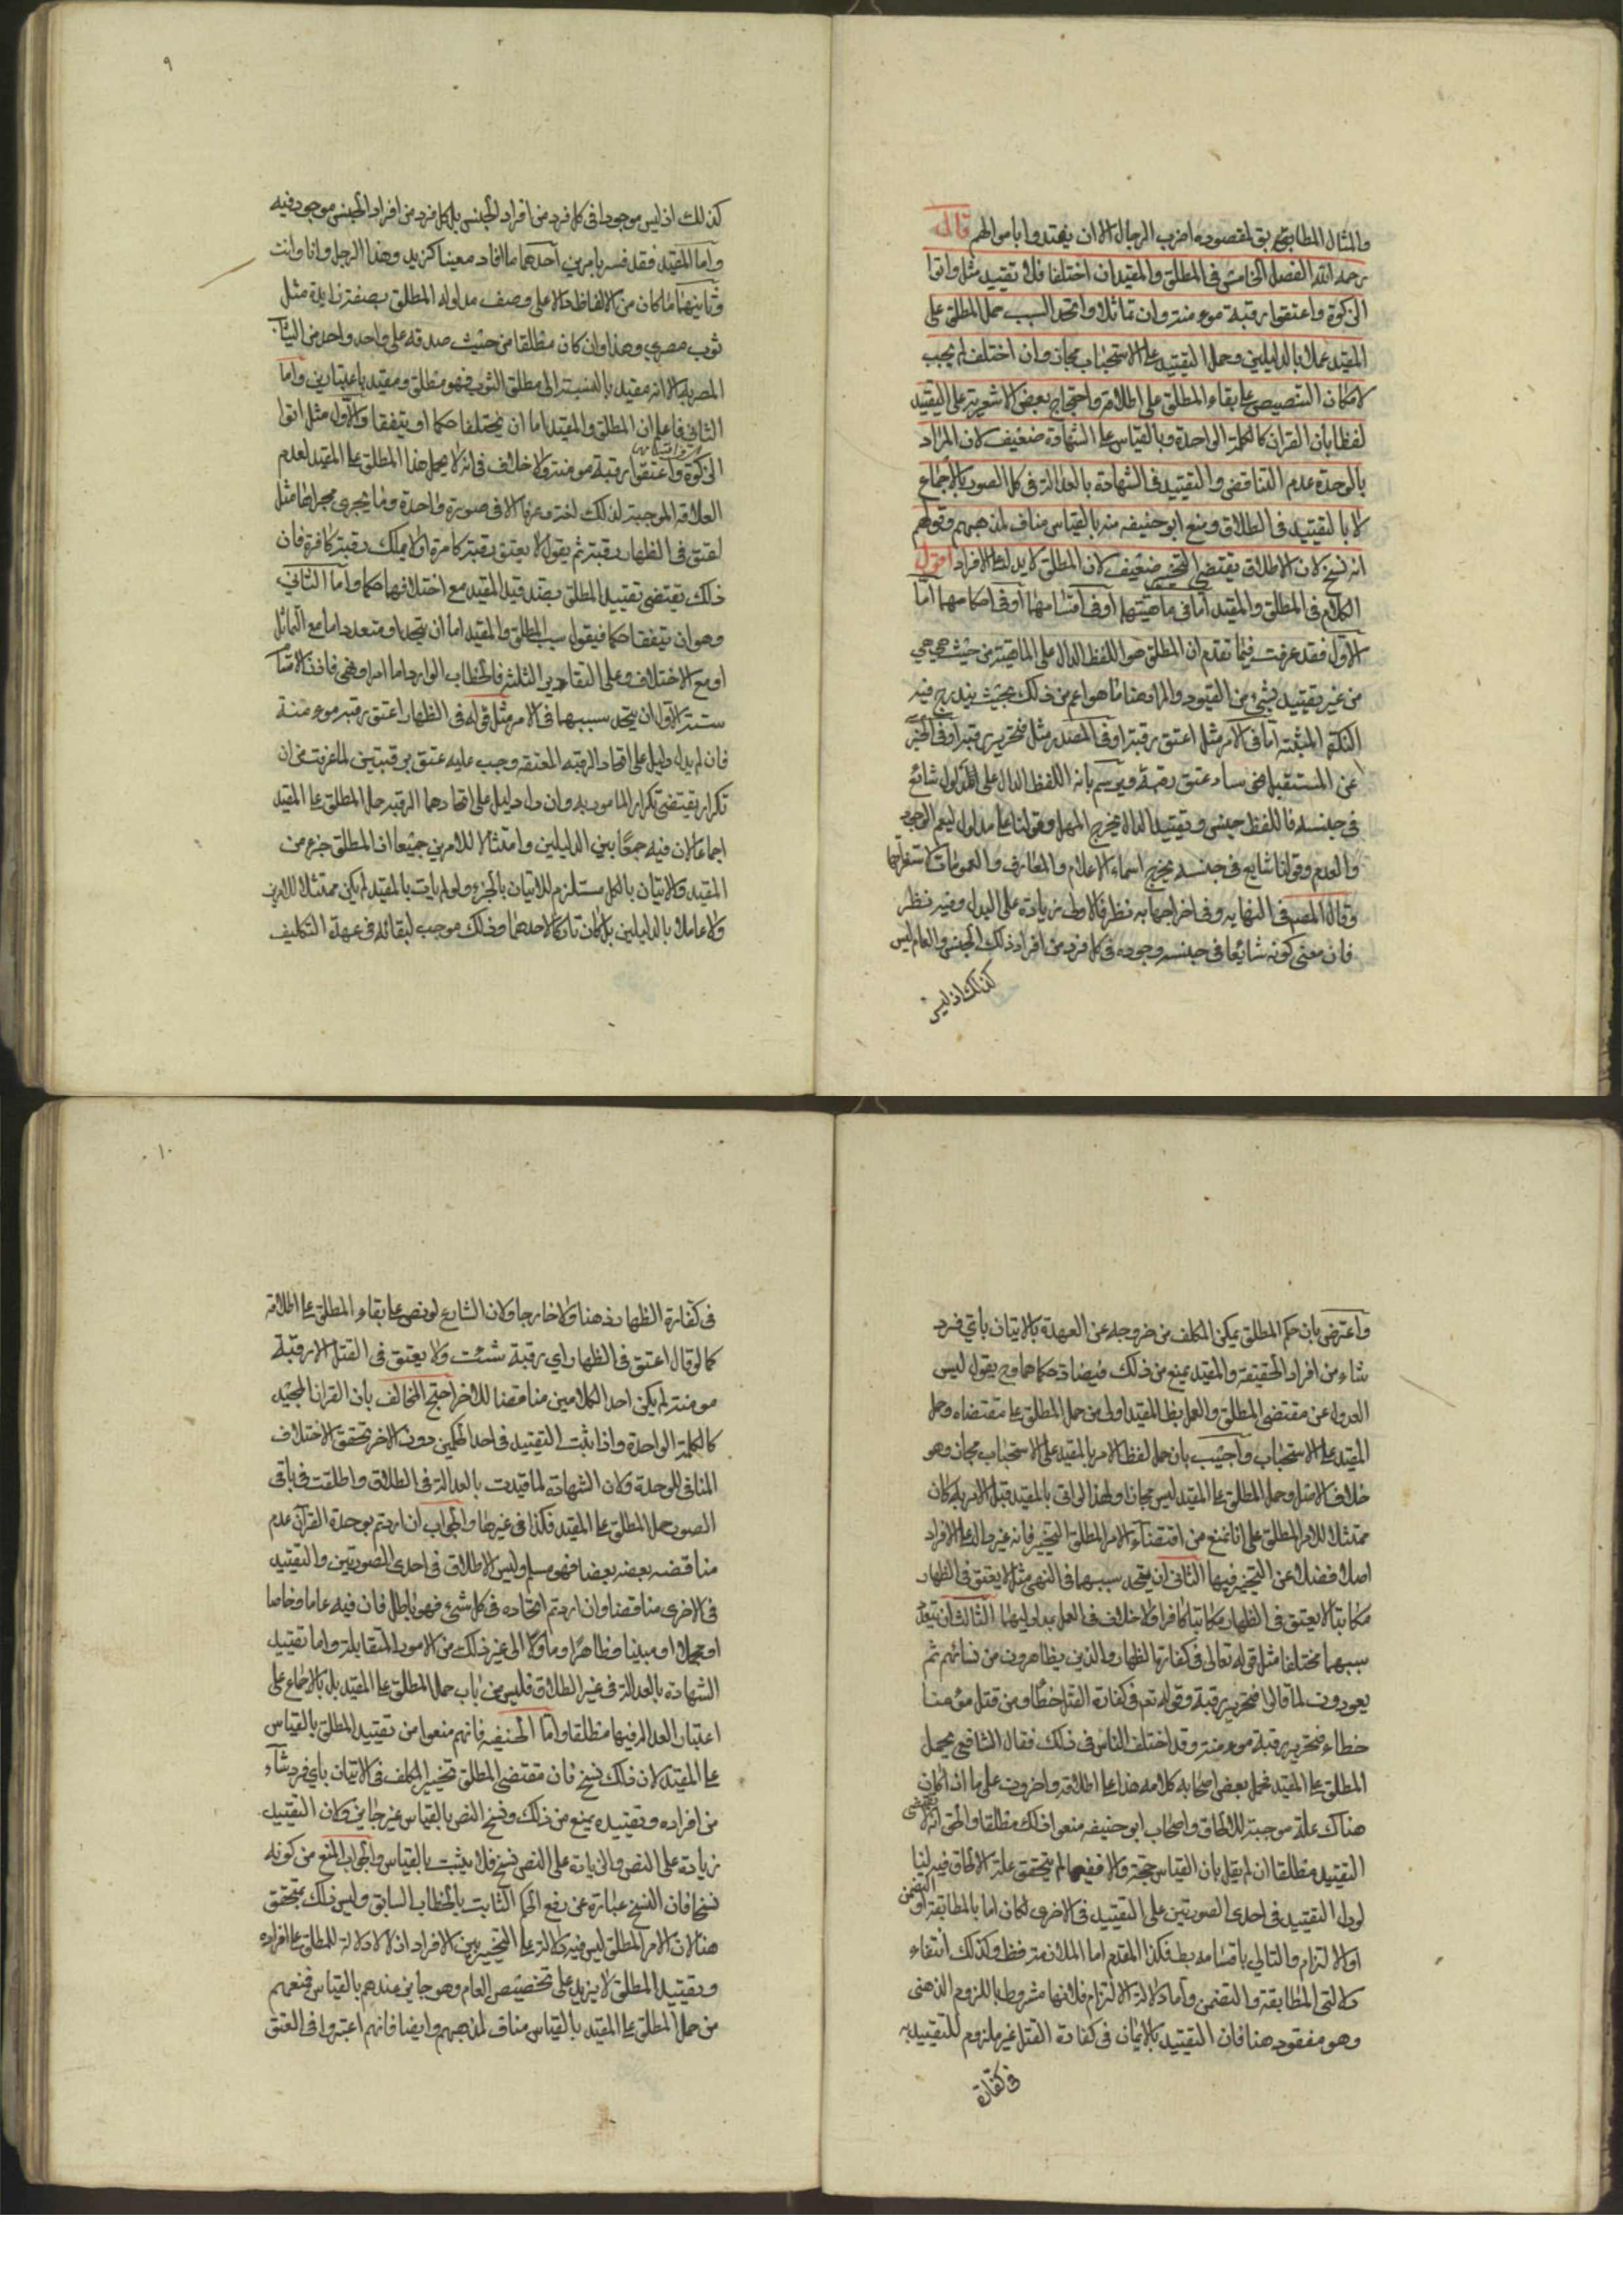 والمثال المطابق لمقصوده اضرب الرجال الا ان يفتدوا باموالهم قال
رحمه الله الفصل الخامس فى المطلق والمقيد ان اختلفا فلا تقييد مثل واتوا
الزكوة واعتقوا رقبة مومنة وان تماثلا واتحد السبب حمل المطلق على
المقيد عملا بالدليلين وحمل التقييد على الاستحباب مجاز وان اختلف لم يجب
لامكان التنصيص على بقاء المطلق على اطلاقه واحتجاج بعض الاشعرية على التقييد
لفظا بان القران كالكلمة الواحدة وبالقياس على الشهادة ضعيف لان المراد
بالوحدة عدم التناقض والتقييد فى الشهادة بالعدالة فى كل الصور بالاجماع
لا بالتقييد فى الطلاق ومنع ابو حنيفه منه بالقياس مناف لمذهبهم وقولهم
انه نسخ لان الاطلاق يقتضى التخيير ضعيف لان المطلق لا يدل على الافراد اقول
الكلام فى المطلق والمقيد اما فى ماهيتهما او فى اقسامهما او فى احكامهما اما
الاول فقد عرفت فيما تقدم ان المطلق هو اللفظ الدال على الماهية من حيث هي هي
من غير تقييد بشئ من القيود والمراد هنا ما هو اعم من ذلك بحيث يندرج فيه
النكرة المثبتة اما فى الامر مثل اعتق رقبة او فى المصدر مثل فتحرير رقبة او فى الخبر
عن المستقبل نحو ساعتق رقبة ويرسم بانه اللفظ الدال على مدلول شائع
فى جنسه فاللفظ جنس وتقييد الدال يخرج المهمل وقولنا على مدلول ليعم الوجود
والعدم وقولنا شايع فى جنسه يخرج اسماء الاعلام والمعارف والعمومات لاستغراقها
وقال المصـ فى النهايه وفى اخراجها به نظر فالاولى زيادة على البدل وفيه نظر
فان معنى كونه شائعا فى جنسه وجوده فى كل فرد من افراد ذلك الجنس والعام ليس
كذلك اذ ليس
٩
كذلك اذ ليس موجودا فى كل فرد من افراد الجنس بل كل فرد من افراد الجنس موجود فيه
واما المقيد فقد فسر بامرين احدهما ما افاد معينا كزيد وهذا الرجل وانا وانت
وثانيهما ما كان من الالفاظ دالا على وصف مدلوله المطلق بصفة زايدة مثل
ثوب مصري وهذا وان كان مطلقا من حيث صدقه على واحد واحد من الثياب
المصرية الا انه مقيد بالنسبة الى مطلق الثوب فهو مطلق ومقيد باعتبارين واما
الثاني فاعلم ان المطلق والمقيد اما ان يختلفا حكما او يتفقا والاول مثل اتوا
الزكوة واعتقوا رقبة مومنة ولا خلاف فى انه لا يحمل هذا المطلق على المقيد لعدم
العلاقة الموجبة لذلك لغة وعرفا الا فى صورة واحدة وما يجرى مجراها مثل
لتعتق فى الظهار رقبة ثم يقول لا يعتق رقبة كافرة او لا يملك رقبة كافرة فان
ذلك يقتضى تقييد المطلق بضد قيد المقيد مع اختلافهما حكما واما الثاني
وهو ان يتفقا حكما فيقول سبب المطلق والمقيد اما ان يتحد او متعدد اما مع التماثل
او مع الاختلاف وعلى التقادير الثلثة فالخطاب الوارد اما امر او نهى فاذن الاقسام
ستة الاول ان يتحد سببهما فى الامر مثل قوله فى الظهار اعتق رقبة مومنة
فان لم يدل دليل على اتحاد الرقبة المعتقة وجب عليه عتق رقبتين لما عرفت من ان
تكراره يقتضى تكرار المامور به وان دل دليل على اتحادهما الرقبة حمل المطلق على المقيد
اجماعا لان فيه جمعا بين الدليلين وامتثالا للامرين جميعا اذ المطلق جزء من
المقيد والاتيان بالكل مستلزم للاتيان بالجزء ولو لم يات بالمقيد لم يكن ممتثلا للامرين
ولا عاملا بالدليلين بل كان تاركا لاحدهما وذلك موجب لبقائه فى عهدة التكليف
واعترض بان حكم المطلق يمكن المكلف من خروجه عن العهدة بالاتيان باي فرد
شاء من افراد الحقيقة والمقيد يمنع من ذلك فيضاد حكماهما وح يقول ليس
العدول عن مقتضى المطلق والعمل بظ المقيد اولى من حمل المطلق على مقتضاه وحمل
المقيد على الاستحباب واجيب بان حمل لفظ الامر بالمقيد على الاستحباب مجاز وهو
خلاف الاصل وحمل المطلق على المقيد ليس مجازا ولهذا لو اتى بالمقيد قبل الامر به كان
ممتثلا للامر المطلق على انا نمنع من اقتضاء الامر المطلق التخيير فانه غير دال على الافراد
اصلا فضلا عن التخيير فيها الثانى ان يتحد سببهما فى النهى مثل لا يعتق فى الظهار
مكاتبا لا يعتق فى الظهار مكاتبا كافرا ولا خلاف فى العمل بمدلوليهما الثالث ان يتعدد
سببهما مختلفا مثل قوله تعالى فى كفارة الظهار والذين يظاهرون من نسائهم ثم
يعودون لما قالوا فتحرير رقبة وقوله تعـ فى كفارة القتل خطأ ومن قتل مؤمنا
خطاء فتحرير رقبة مومنة وقد اختلف الناس فى ذلك فقال الشافعي يحمل
المطلق على المقيد فحمل بعض اصحابه كلامه هذا على اطلاقه واخرون على ما اذا كان
هناك علة موجبة للالحاق واصحاب ابو حنيفه منعوا ذلك مطلقا والحق انه لا يقتضى
التقييد مطلقا ان لم يقل بان القياس حجة والا ففيما لم يتحقق علة الالحاق فيه لنا
لو دل التقييد فى احدى الصورتين على التقييد فى الاخرى لكان اما بالمطابقة او التضمن
او الالتزام والتالي باقسامه بط فكذا المقدم اما الملازمة فظ وكذلك انتفاء
دلالتى المطابقة والتضمن واما دلالة الالتزام فلانها مشروطة باللزوم الذهنى
وهو مفقود هنا فان التقييد بالايمان فى كفارة القتل غير ملزوم للتقييد به
فى كفارة
١٠
فى كفارة الظهار ذهنا ولا خارجا ولان الشارع لو نص على بقاء المطلق على اطلاقه
كما لو قال اعتق فى الظهار اي رقبة شئت ولا يعتق فى القتل الا رقبة
مومنة لم يكن احد الكلامين مناقضا للاخر احتج المخالف بان القران المجيد
كالكلمة الواحدة واذا ثبت التقييد فى احد الحكمين دون الاخر تحقق الاختلاف
المنافى للوحدة ولان الشهادة لما قيدت بالعدالة فى الطلاق واطلقت فى باقى
الصور حمل المطلق على المقيد فكذا فى غيرها والجواب ان اردتم بوحدة القرآن عدم
مناقضة بعضه بعضا فهو مسلم وليس الاطلاق فى احدى الصورتين والتقييد
فى الاخرى مناقضا وان اردتم اتحاده فى كل شئ فهو باطل فان فيه عاما وخاصا
او مجملا او مبينا وظاهرا وماولا الى غير ذلك من الامور المتقابلة واما تقييد
الشهادة بالعدالة فى غير الطلاق فليس من باب حمل المطلق على المقيد بل بالاجماع على
اعتبار العدالة فيها مطلقا واما الحنيفه فانهم منعوا من تقييد المطلق بالقياس
على المقيد لان ذلك نسخ فان مقتضى المطلق تخيير المكلف فى الاتيان باي فرد شاء
من افراده وتقييده يمنع من ذلك ونسخ النص بالقياس غير جايز ولان التقييد
زيادة على النص والزيادة على النص نسخ فلا يثبت بالقياس والجواب المنع من كونه
نسخا فان النسخ عبارة عن رفع الحكم الثابت بالخطاب السابق وليس ذلك بمتحقق
هنا لان الامر المطلق ليس فيه دلالة على التخيير بين الافراد اذ لا دلالة للمطلق على افراده
وتقييد المطلق لا يزيد على تخصيص العام وهو جايز عندهم بالقياس فمنعهم
من حمل المطلق على المقيد بالقياس مناف لمذهبهم وايضا فانهم اعتبروا فى العتق